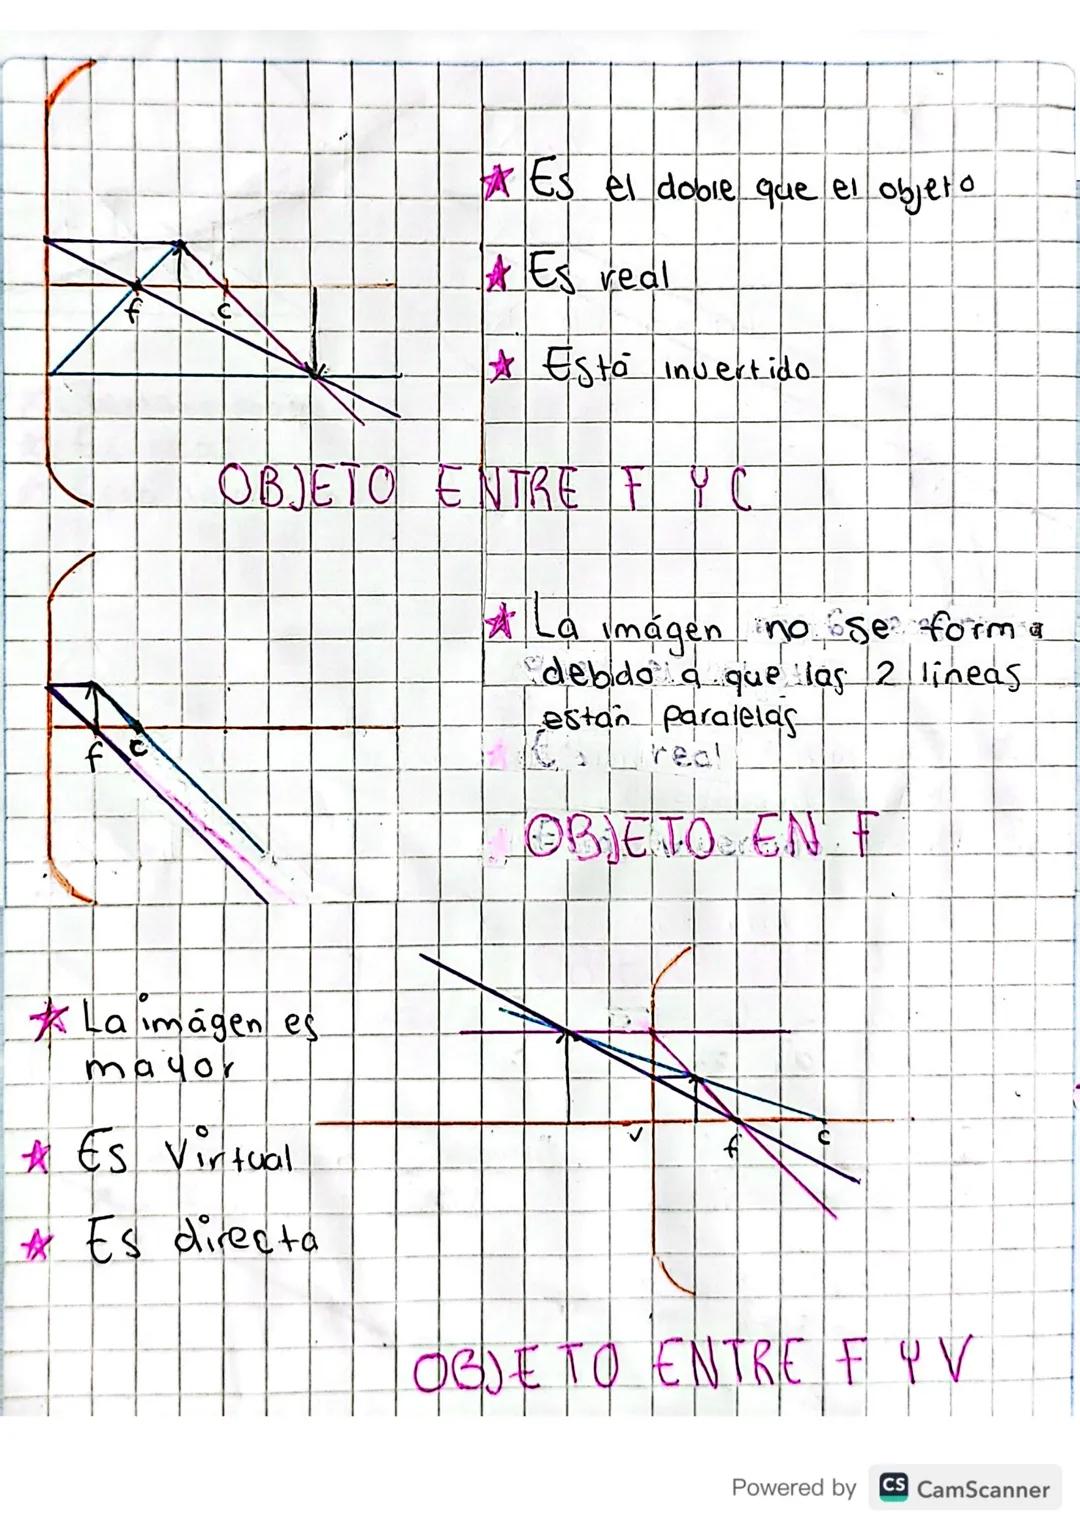 ★ Es el doble que el objeto
★ Es real
★ Está invertido
f
c
OBJETO ENTRE F Y C
★ La imágen no se forma
debido a que las 2 lineas
están paralelas
real
f
c
OBJETO EN F
★ La imágen es
mayor
★ Es Virtual
★ Es directa
v
f
c
OBJETO ENTRE F Y V
Powered by CS CamScanner